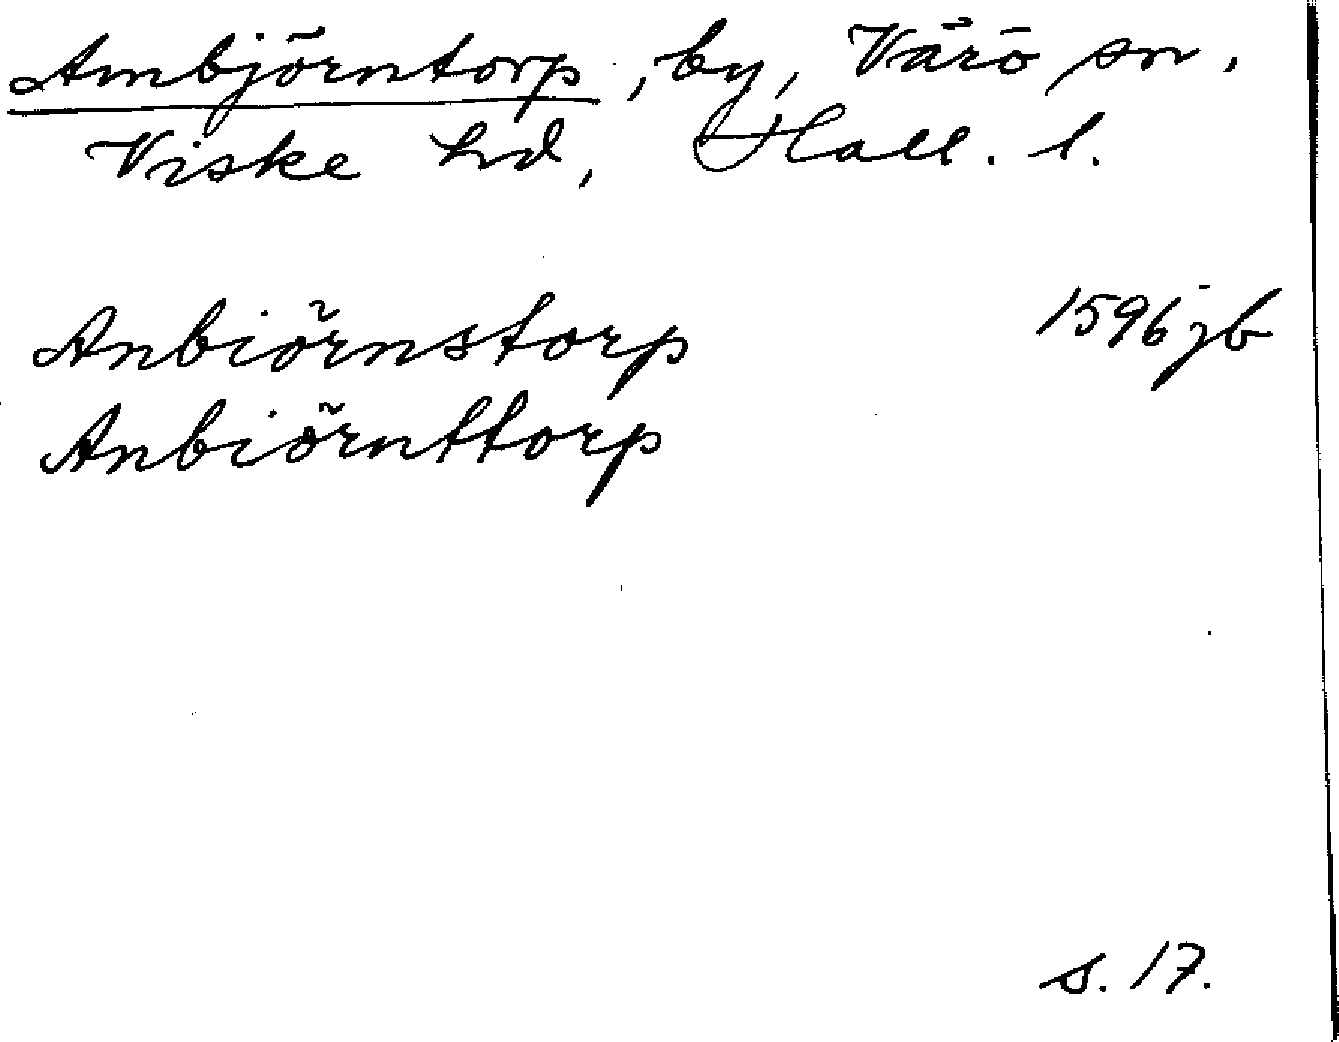 Ambjörntorp, by, Värö sn.
Viske hd, Hall. l.
Anbiörnstorp 1596 jb
Anbiörnttorp
s. 17.